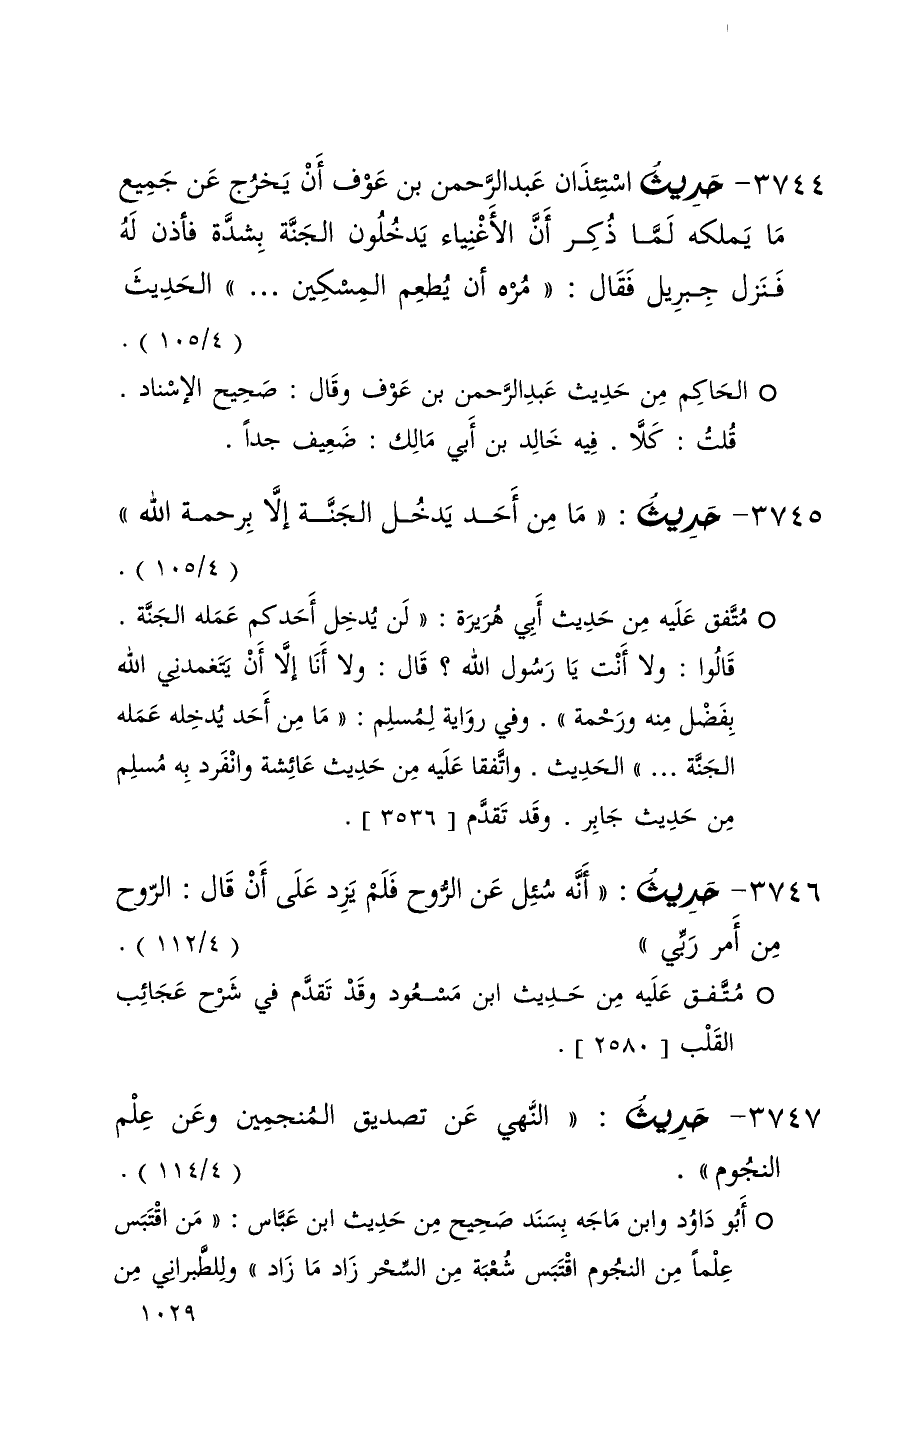 ٣٧٤٤- حَدِيثُ اسْتِئذَان عَبدالرَّحمن بن عَوْف أَنْ يَخرُج عَن جَمِيع
مَا يَملكه لَمَّا ذُكِر أَنَّ الأَغْنِياء يَدخُلُون الجَنَّة بِشدَّة فأذن لَهُ
فَنَزل جِبرِيل فَقَال : « مُرْه أن يُطعِم المِسْكِين ... » الحَدِيثَ
( ١٠٥/٤ ) .
○ الحَاكِم مِن حَدِيث عَبدِالرَّحمن بن عَوْف وقَال : صَحِيح الإسْناد .
قُلتُ : كَلَّا . فِيه خَالِد بن أَبي مَالِك : ضَعِيف جداً .
٣٧٤٥- حَدِيثُ : « مَا مِن أَحَد يَدخُل الجَنَّة إلَّا بِرحمة الله »
( ١٠٥/٤ ) .
○ مُتَّفق عَلَيه مِن حَدِيث أَبِي هُرَيرَة : « لَن يُدخِل أَحَدكم عَمَله الجَنَّة .
قَالُوا : ولا أَنْت يَا رَسُول الله ؟ قَال : ولا أَنَا إلَّا أَنْ يَتَغمدنِي الله
بِفَضْل مِنه ورَحْمة » . وفي روَاية لِمُسلِم : « مَا مِن أَحَد يُدخِله عَمَله
الجَنَّة ... » الحَدِيث . واتَّفقا عَلَيه مِن حَدِيث عَائِشة وانْفَرد بِه مُسلِم
مِن حَدِيث جَابِر . وقَد تَقدَّم [ ٣٥٣٦ ] .
٣٧٤٦- حَدِيثُ : « أَنَّه سُئِل عَن الرُّوح فَلَمْ يَزِد عَلَى أَنْ قَال : الرّوح
مِن أَمر رَبِّي » ( ١١٢/٤ ) .
○ مُتَّفق عَلَيه مِن حَدِيث ابن مَسْعُود وقَدْ تَقدَّم في شَرْح عَجَائِب
القَلْب [ ٢٥٨٠ ] .
٣٧٤٧- حَدِيثُ : « النَّهي عَن تصديق المُنجمِين وعَن عِلْم
النجُوم » . ( ١١٤/٤ ) .
○ أَبُو دَاوُد وابن مَاجَه بِسَنَد صَحِيح مِن حَدِيث ابن عَبَّاس : « مَن اقْتَبَس
عِلْماً مِن النجُوم اقْتَبَس شُعْبَة مِن السِّحْر زَاد مَا زَاد » ولِلطَّبراني مِن
١٠٢٩